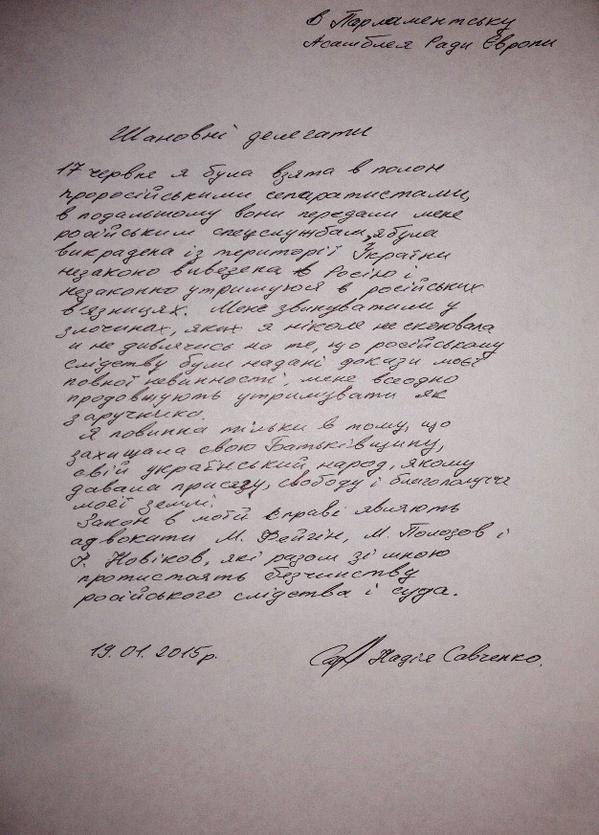 В Парламентську
Асамблея Ради Європи
Шановні делегати
17 червня я була взята в полон
проросійськими сепаратистами,
в подальшому вони передали мене
російським спецслужбам, я була
викрадена із території України
незаконо вивезена в Росію і
незаконно утримуюся в російських
в'язницях. Мене звинуватили у
злочинах, яких я ніколи не скоювала
и не дивлячись на те, що російському
слідству були надані докази моєї
повної невинності, мене всеодно
продовжують утримувати як
заручника.
Я повинна тільки в тому, що
захищала свою Батьківщину,
свій український народ, якому
давала присягу, свободу і благополуччя
моєї землі.
Закон в моїй справі являють
адвокати М. Фейгін, М. Полозов і
І. Новіков, які разом зі мною
протистоять безчинству
російського слідства і суда.
19.01.2015р.
Надія Савченко.